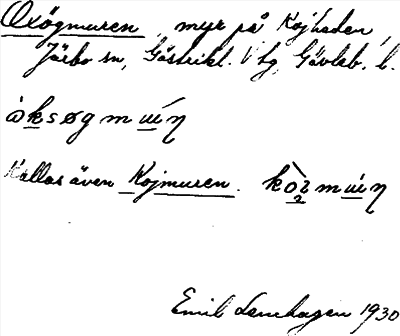 Oxögmuren, myr på Kojheden,
Järbo sn, Gästrikl. V. tg, Gävleb. l.
òksøgmuı́ŋ
Kallas även Kojmuren.
Emil Lenhagen 1930